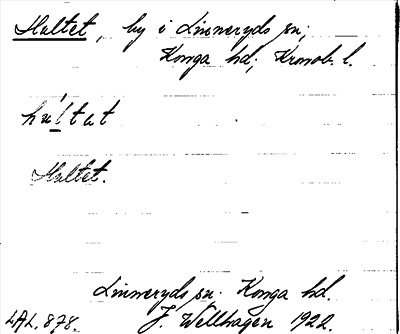 Hultet, by i Linneryds sn,
Konga hd, Kronob. l.
húltat
Hultet.
Linneryds sn. Konga hd.
LAL. 878. J. Wellhagen 1922.